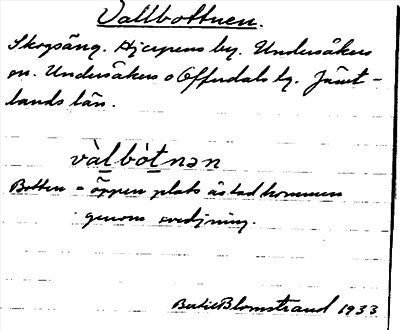 Vallbottnen.
Skogsäng. Hjerpens by. Undersåkers
sn. Undersåkers o Offerdals tg. Jämt-
lands län.
vàlbòtnən
Botten = öppen plats åstadkommen
genom svedjning.
Bertil Blomstrand 1933